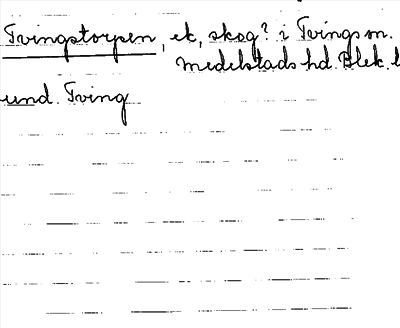 Tvingstorpen, ek, skog? i Tvings sn.
Medelstads hd. Blek. l
und. Tving